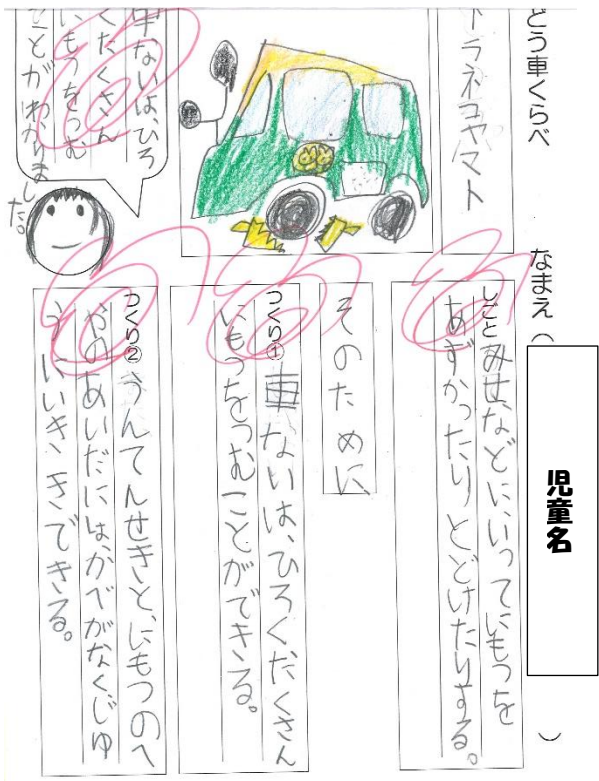 どう車くらべ
なまえ（
児童名
）
トラネコヤマト
しごと みせなどにいってにもつを
あずかったりとどけたりする。
そのために
つくり① 車ないは、ひろくたくさん
にもつをつむことができる。
つくり② うんてんせきと、にもつのへ
やのあいだには、かべがなくじゆ
うにいききできる。
車ないは、ひろ
くたくさん
にもつをつむ
ことがわかりました。